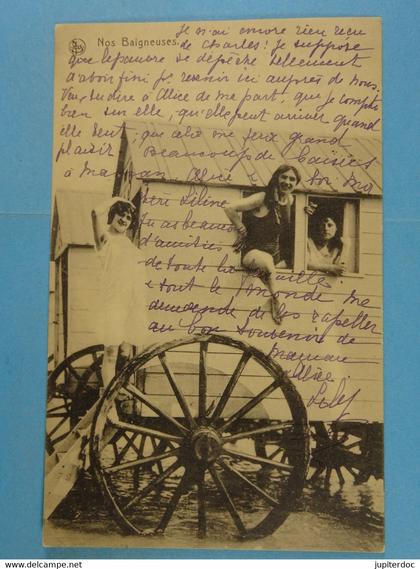 Nos Baigneuses.
Je n'ai encore rien reçu
de Charles! Je suppose
que le pauvre se dépêche tellement
d'avoir fini pr revenir ici auprès de nous.
Veux-tu dire à Alice de ma part, que je compte
bien sur elle, qu'elle peut arriver quand
elle veut, que cela me fera grand
plaisir. Beaucoup de baisers
à Maman, Alice
Liline
Tu as beaucoup
d'amitiés
de toute la famille
tout le monde me
demande de les rappeler
au bon souvenir de
Maman
Alice.
www.delcampe.net
jupiterdoc